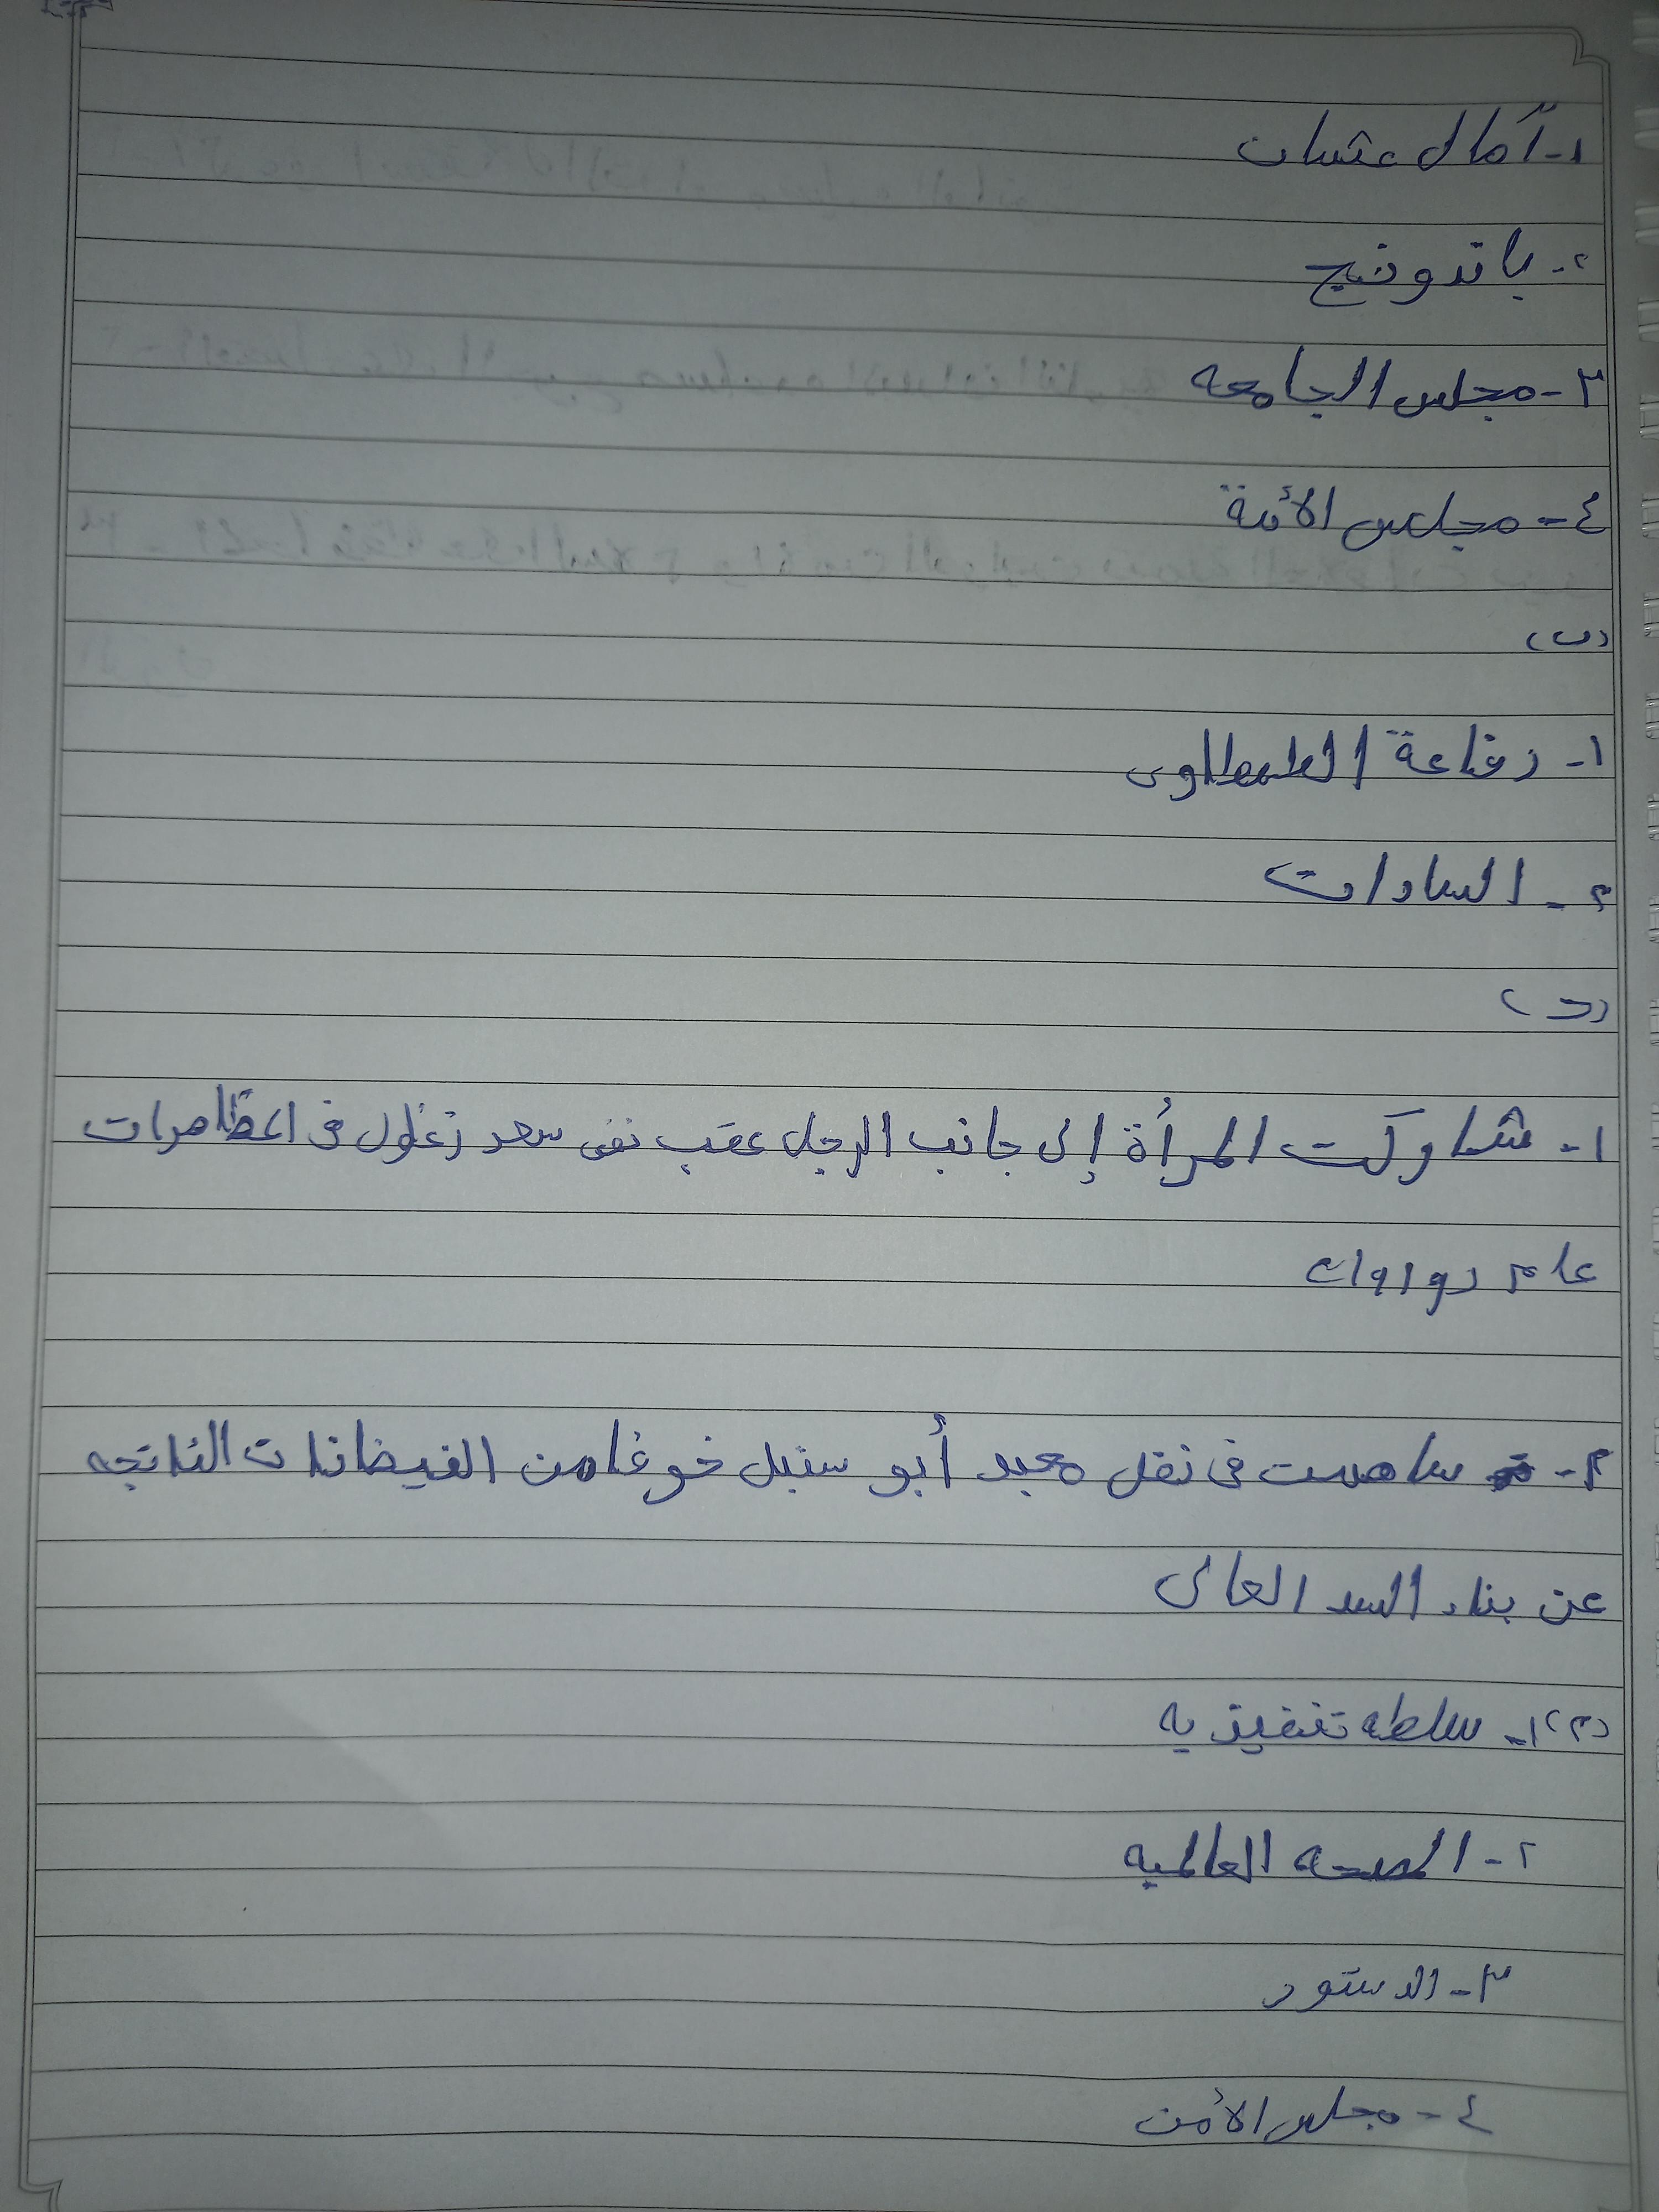 ١- آمال عثمان
٢- باندونج
٣- مجلس الجامعه
٤- مجلس الأمة
(ب)
١- رفاعة الطهطاوى
٢- السادات
(حـ)
١- شاركت المرأة إلى جانب الرجل عقب نفى سعد زغلول فى المظاهرات
عام
٢- ساهمت فى نقل معبد أبو سنبل خوفا من الفيضانات الناتجه
عن بناء السد العالى
(٢) ١- سلطه تنفيذيه
٢- الصحه العالميه
٣- الدستور
٤- مجلس الأمن